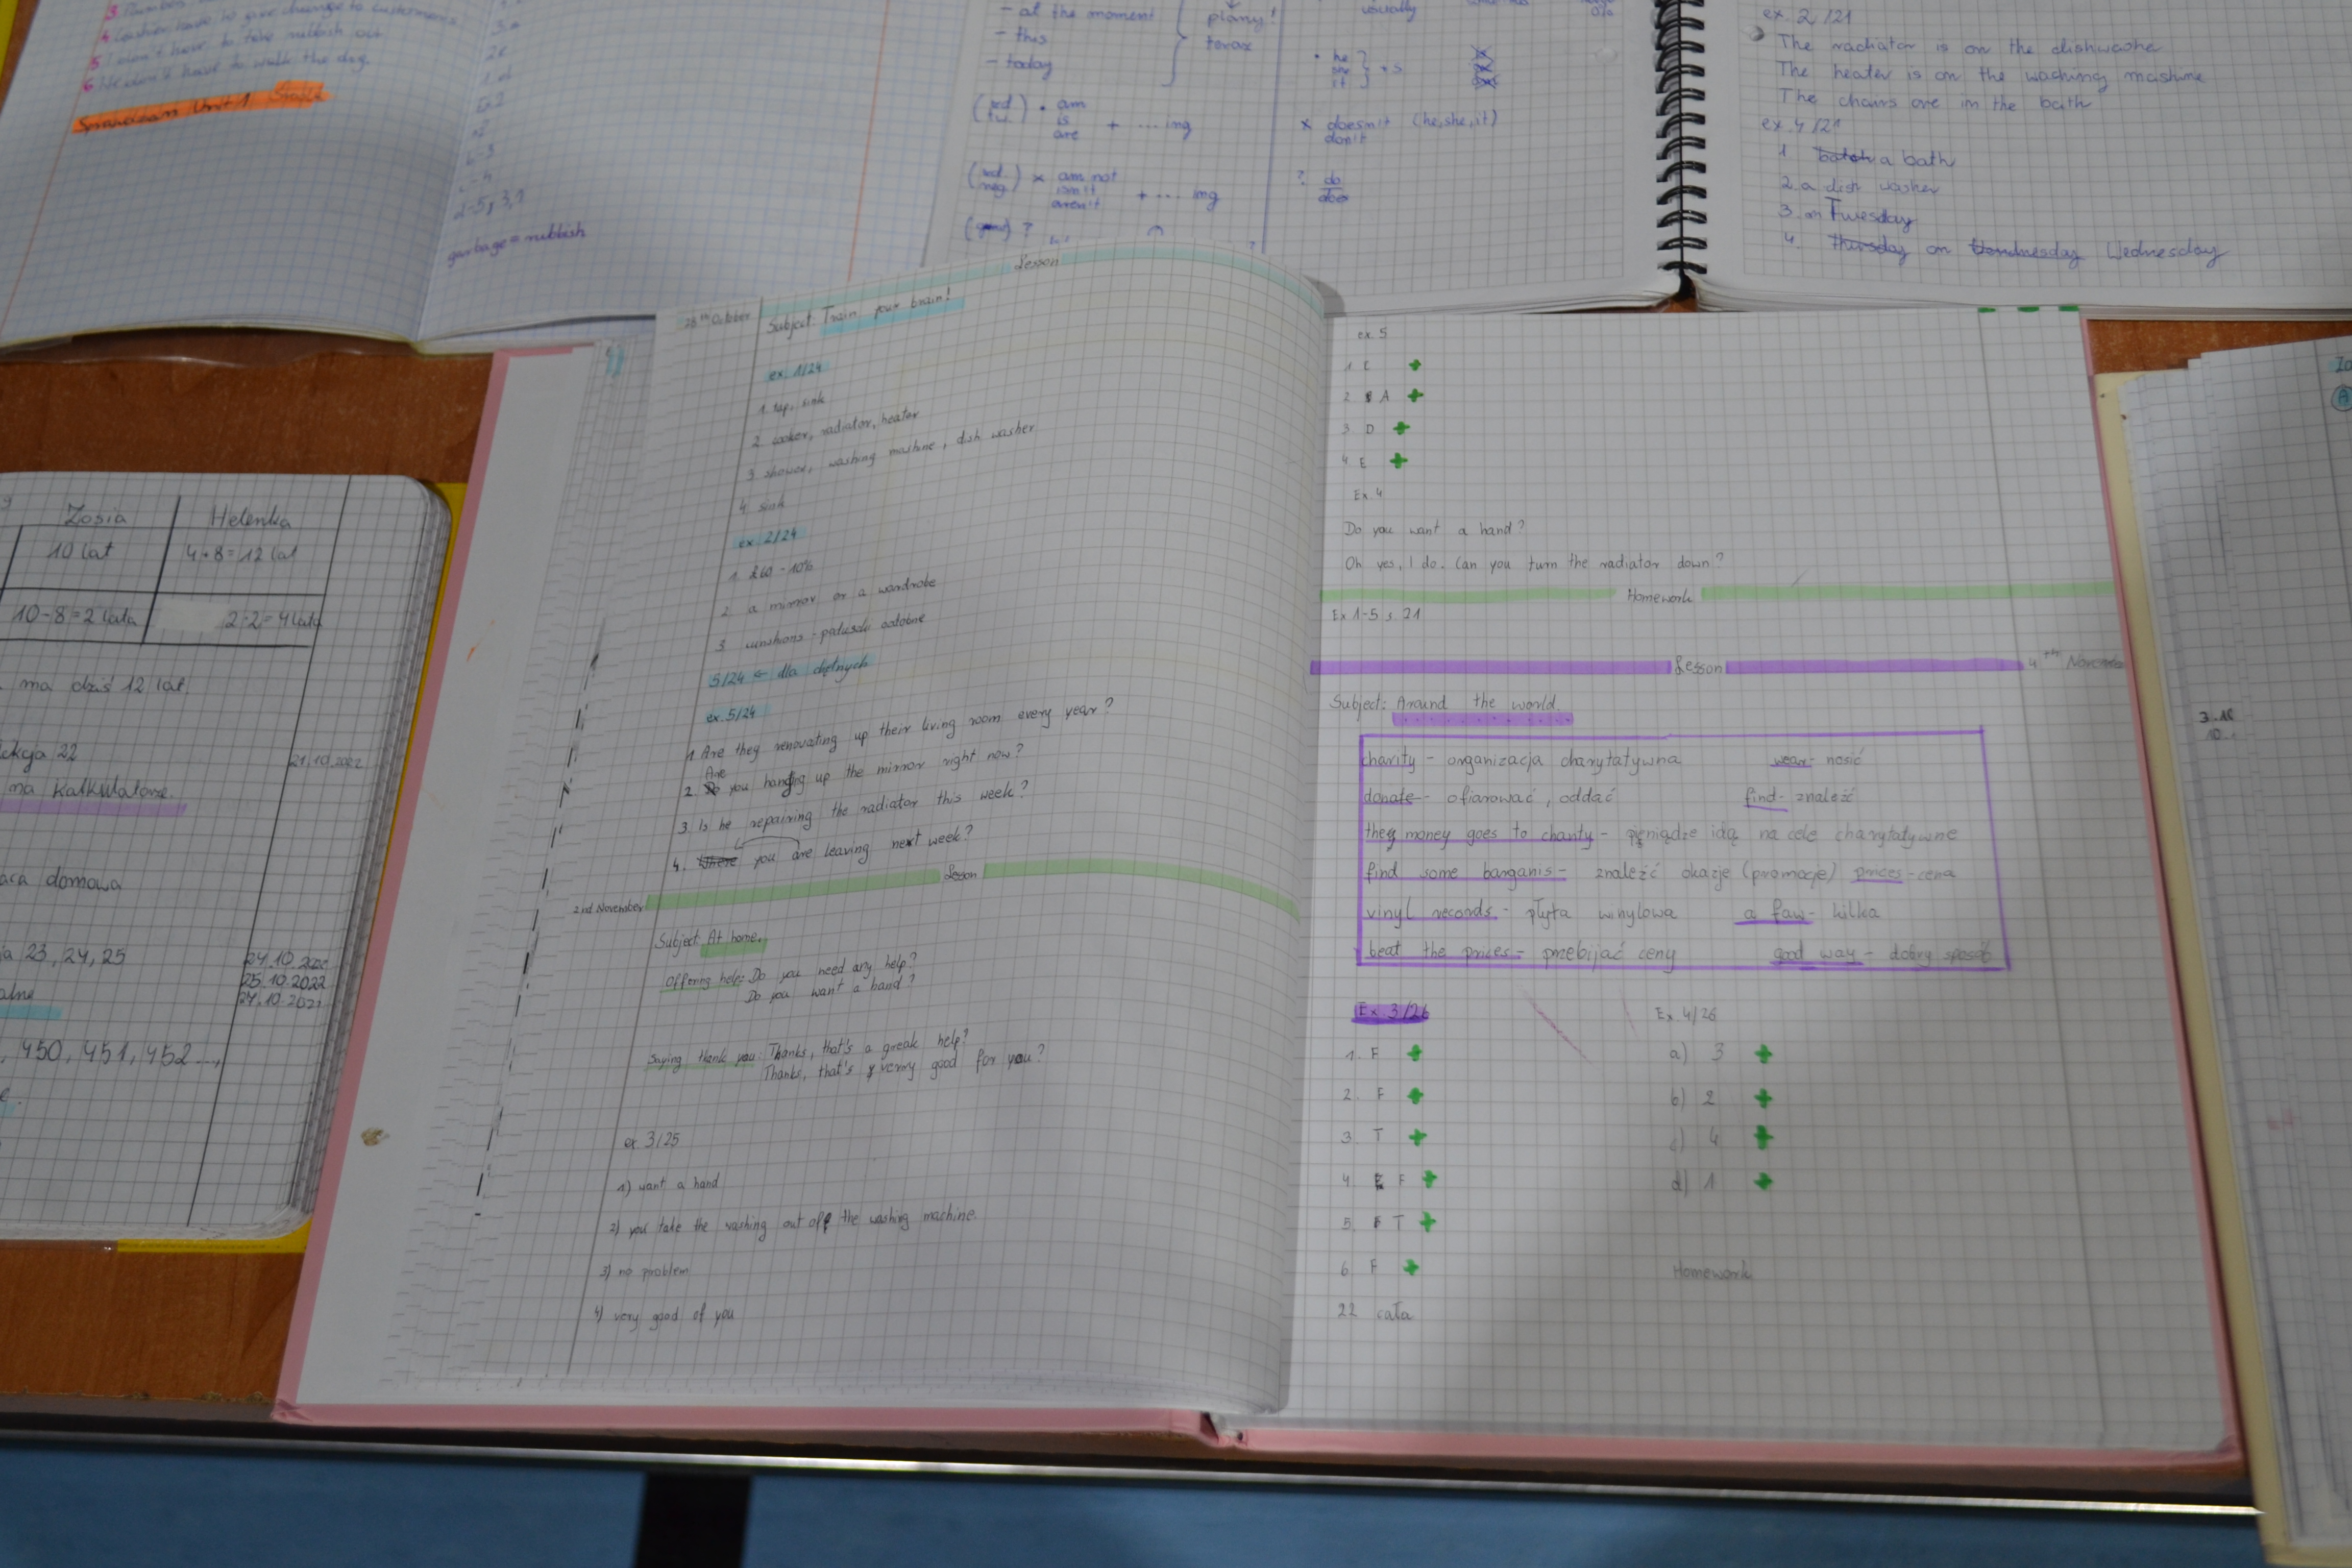 4 Cashier have to give change to customers
5 I don't have to take rubbish out
6 He don't have to walk the dog.
Sprawdzian Unit 1
garbage = rubbish
- at the moment
- this
- today
plany!
teraz
• am
is
are
+ ... ing
x am not
isn't
aren't
+ ... ing
usually
• he
she
it
+s
x doesn't (he, she, it)
don't
? do
does
ex. 2/21
The radiator is on the dishwashe
The heater is on the waching mashime
The chairs are in the bath
ex. 4/21
1 a bath
2. a dish washer
3. on Tuesday
4. Thursday on Wendnesday Wednesday
Zosia
Helenka
10 lat
4+8=12 lat
10-8=2 lata
2·2=4 lata
ma dziś 12 lat
ekcja 22
21.10.2022
ma kalkulatorze.
aca domowa
a 23, 24, 25
24.10.2022
25.10.2022
27.10.2022
alne
, 450, 451, 452...,
Lesson
28th October
Subject: Train your brain!
ex. 1/24
1. tap, sink
2 cooker, radiator, heater
3 shower, washing mashine, dish washer
4 sink
ex 2/24
1. £60 - 10%
2 a mirror or a wardrobe
3 cunshions - poduszki ozdobne
5/24 ← dla chętnych
ex. 5/24
1. Are they renovating up their living room every year?
Are
2. Do you hanging up the mirror right now?
3. Is he repairing the radiator this week?
4. There you are leaving next week?
Lesson
2nd November
Subject: At home.
Offering help: Do you need any help?
Do you want a hand?
Saying thank you: Thanks, that's a greak help?
Thanks, that's verry good for you?
ex. 3/25
1) want a hand
2) you take the washing out off the washing machine.
3) no problem
4) very good of you
ex. 5
1 E +
2 A +
3 D +
4 E +
Ex. 4
Do you want a hand?
Oh yes, I do. Can you turn the radiator down?
Homework
Ex 1-5 s. 21
Lesson
4th November
Subject: Around the world.
charity - organizacja charytatywna
wear - nosić
donate - ofiarować, oddać
find - znaleźć
they money goes to charity - pieniądze idą na cele charytatywne
find some barganis - znaleźć okazje (promocje)
prices - cena
vinyl records - płyta winylowa
a faw - kilka
beat the prices - przebijać ceny
good way - dobry sposób
Ex. 3/26
Ex. 4/26
1. F +
a) 3 +
2. F +
b) 2 +
3 T +
c) 4 +
4 F +
d) 1 +
5. T +
6 F +
Homework
22 cała